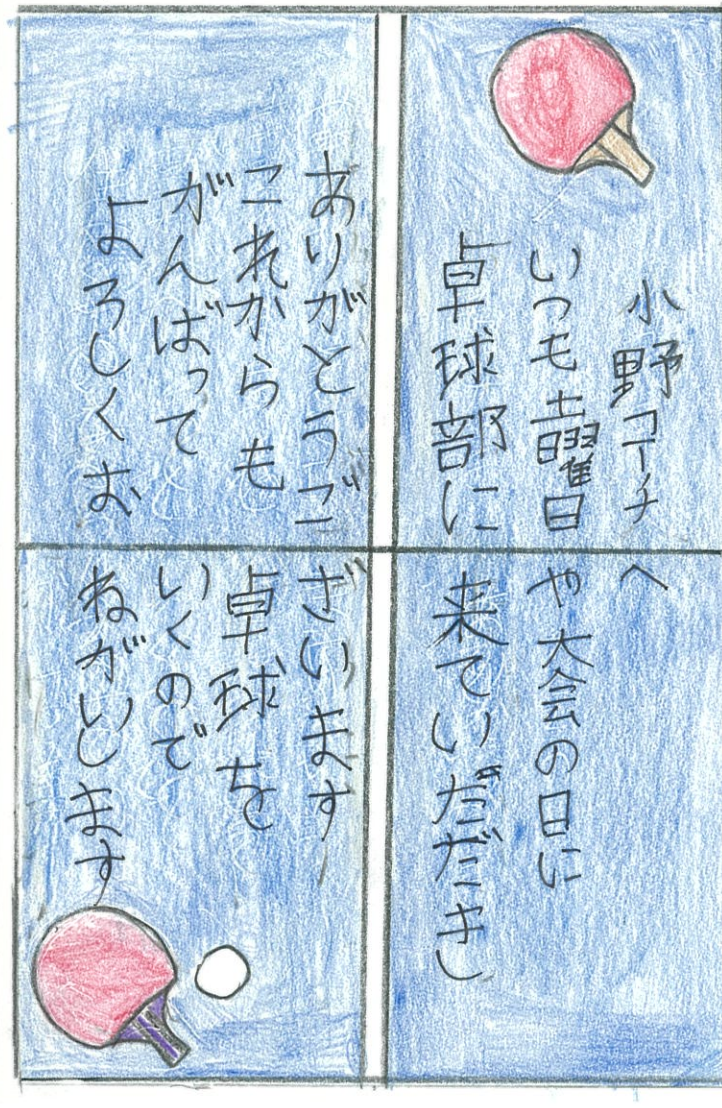 小野コーチへ
いつも土曜日や大会の日に
卓球部に来ていただき
ありがとうございます
これからも卓球を
がんばっていくので
よろしくおねがいします